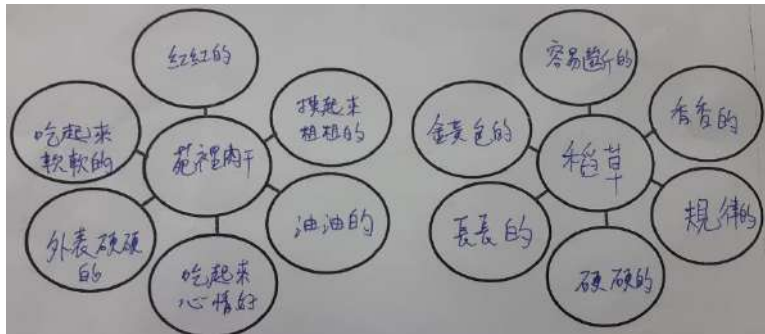 紅紅的
摸起來
粗粗的
油油的
吃起來
心情好
外表硬硬
的
吃起來
軟軟的
苑裡肉干
容易斷的
香香的
規律的
硬硬的
長長的
金黃色的
稻草